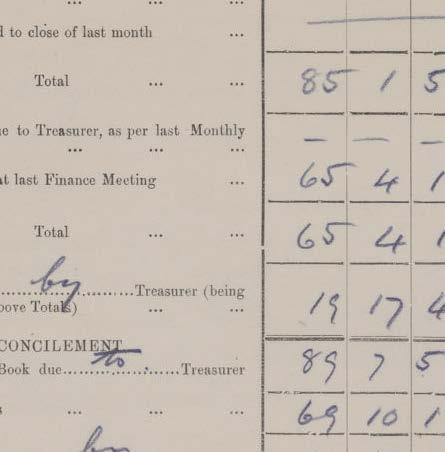 ... ...
d to close of last month ...
Total ... ... 85 1 5
e to Treasurer, as per last Monthly
... ... ... — — —
at last Finance Meeting ... 65 4 1
Total ... ... 65 4 1
by Treasurer (being
ove Totals) ... ... 19 17 4
CONCILEMENT
Book due to Treasurer 89 7 5
s ... ... ... 69 10 1
by